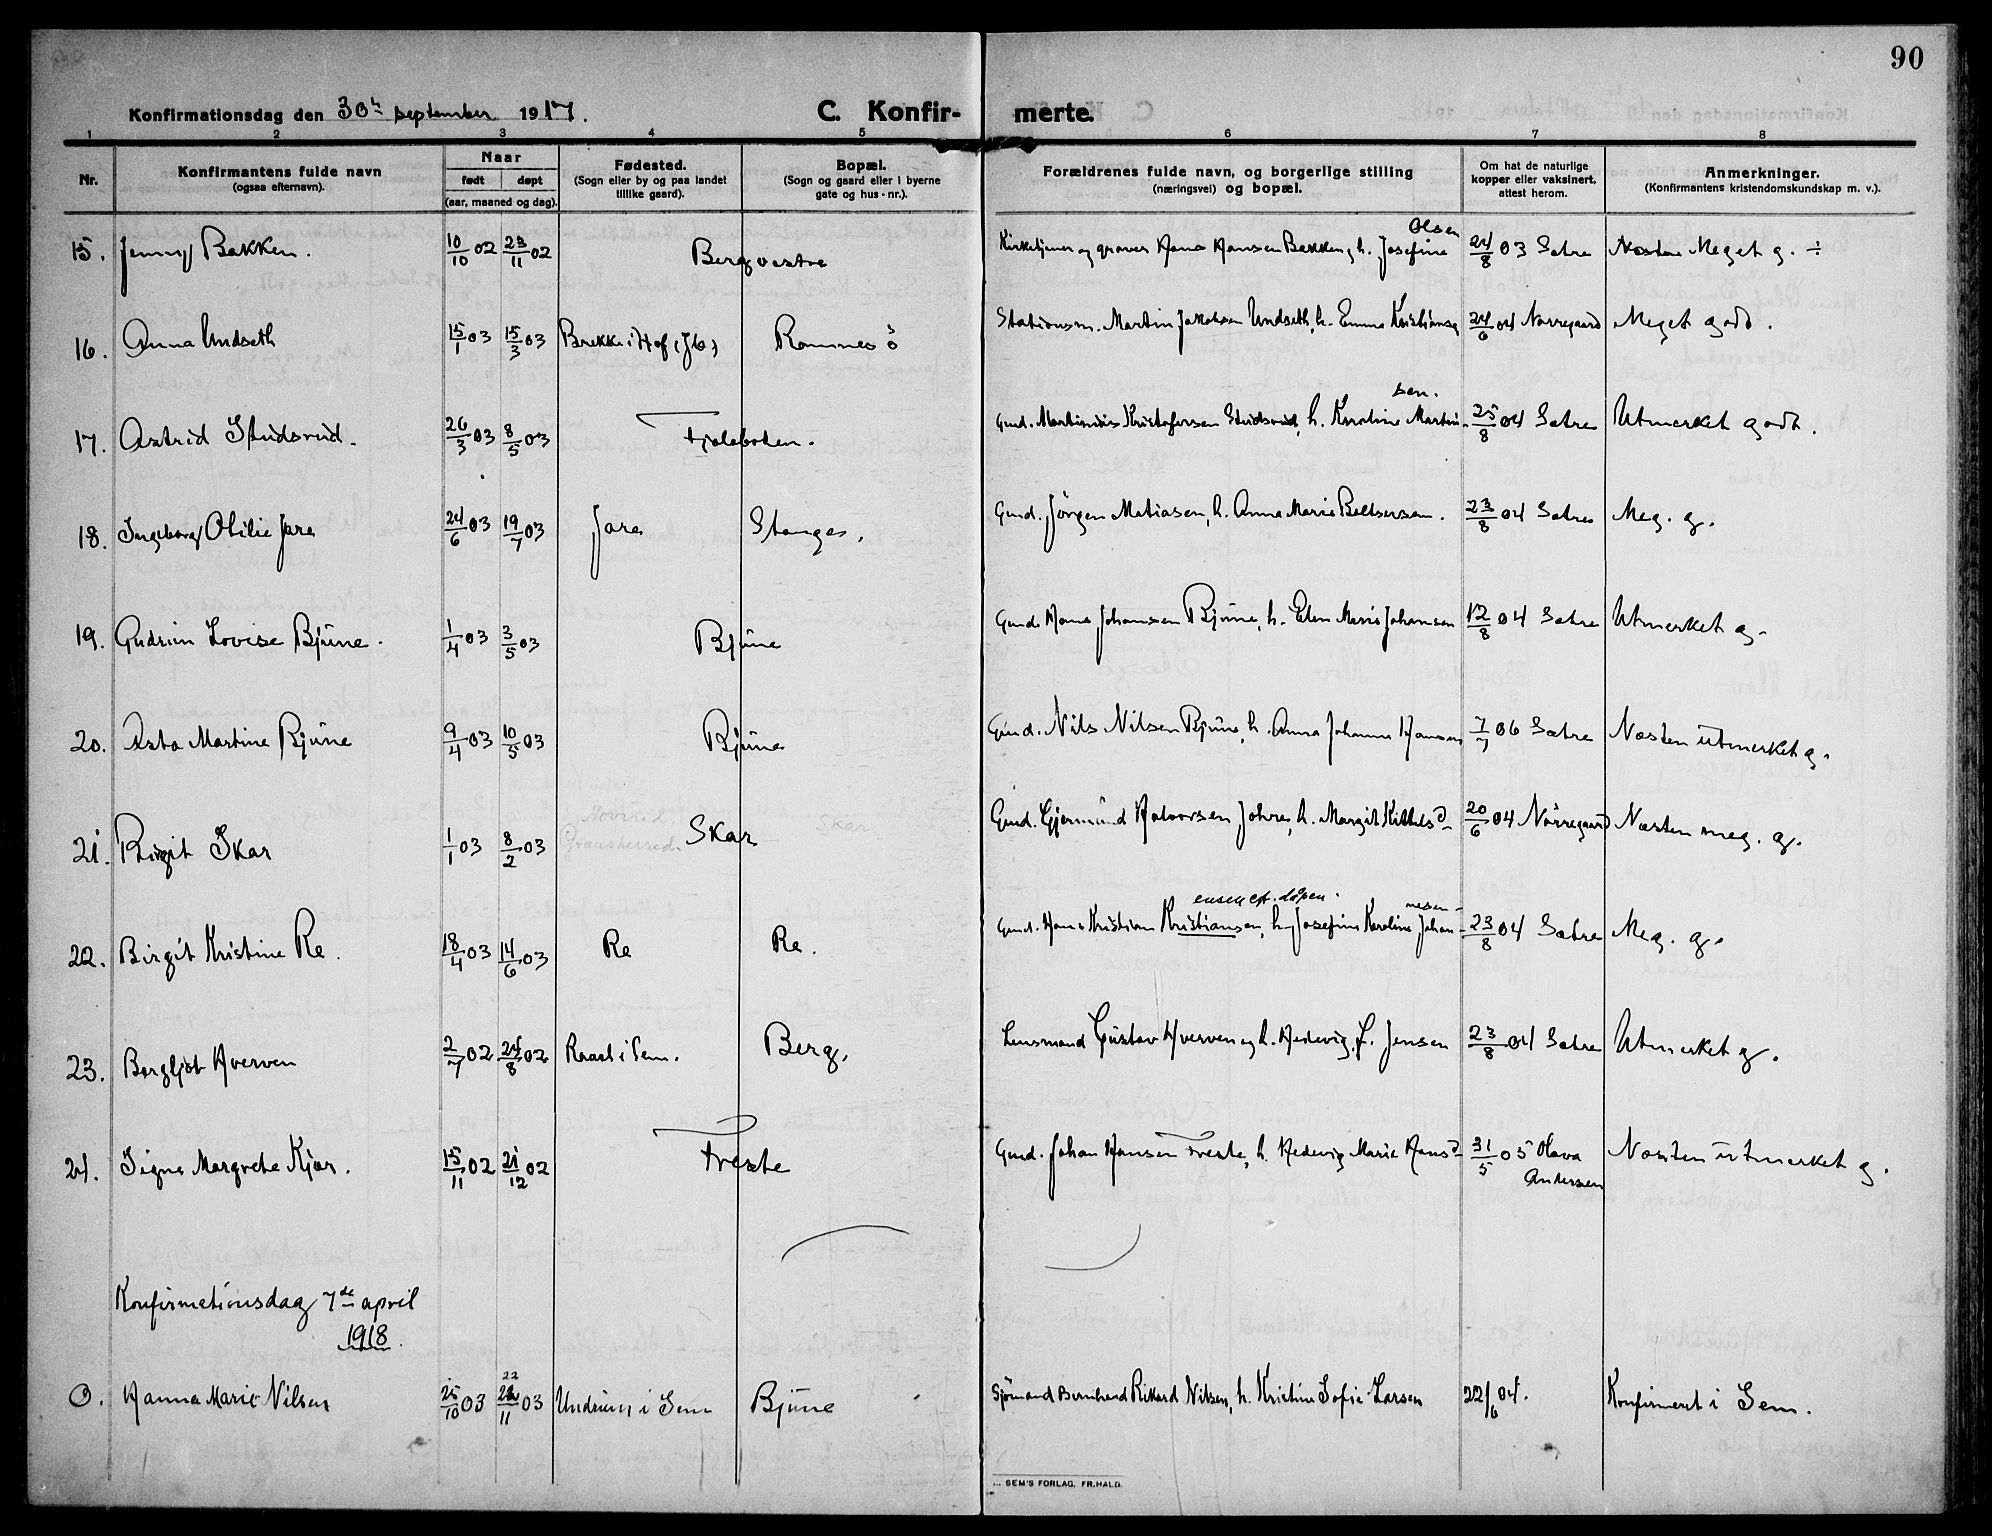 90
Konfirmationsdag den 30te september 1917. C. Konfir- merte.
1 2 3 4 5 6 7 8
Nr. Konfirmantens fulde navn (ogsaa efternavn). Naar født døpt (aar, maaned og dag). Fødested. (Sogn eller by og paa landet tillike gaard). Bopæl. (Sogn og gaard eller i byerne gate og hus-nr.). Forældrenes fulde navn, og borgerlige stilling (næringsvei) og bopæl. Om hat de naturlige kopper eller vaksinert, attest herom. Anmerkninger. (Konfirmantens kristendomskundskap m. v.).
15. Jenny Bakken. 10/10 02 23/11 02 Berg vestre Kirketjener og graver Hans Hansen Bakken, h. Josefine Olsen 24/8 03 Sætre Næsten Meget g. ÷
16. Anna Undseth 15/1 03 15/3 03 Brekke i Hof (Jb.) Ramnes ö Stationsm. Martin Jakobsen Undseth, h. Emma Kristians 24/6 04 Nørregaard Meget godt.
17. Astrid Studsrud. 26/3 03 8/5 03 Fjæleboten. Gmd. Martinius Kristofersen Studsrud, h. Karoline Martinsen. 25/8 04 Sætre Utmerket godt.
18. Ingeborg Otilie Jare 24/6 03 19/7 03 Jare Stanges. Gmd. Jørgen Matiasen, h. Anna Marie Baltsersen. 23/8 04 Sætre Meg. g.
19. Gudrun Lovise Bjune. 1/4 03 3/5 03 Bjune Gmd. Hans Johanssen Bjune, h. Elen Marie Johansen 12/8 04 Sætre Utmerket g.
20. Asta Martine Bjune 9/4 03 10/5 03 Bjune Gmd. Nils Nilsen Bjune, h. Anna Johanne Hansen 7/7 06 Sætre Næsten utmerket g.
21. Birgit Skar 1/1 03 8/2 03 Gransherred. Skar Skar Gmd. Gjermund Halvorsen Johre, h. Margit Kittilsd. 20/6 04 Nørregaard Næsten meg. g.
22. Birgit Kristine Re. 18/4 03 14/6 03 Re Re. Gmd. Hans Kristian Kristiansen, ensen eft. dåpen. h. Josefine Karoline Johannesen 23/8 04 Sætre Meg. g.
23. Borgljot Hverven 2/7 02 24/8 02 Raael i Sem. Berg. Lensmand Gustav Hverven og h. Hedevig J. Jensen 23/8 04 Sætre Utmerket g.
24. Signe Margrete Kjær. 15/11 02 21/12 02 Freste Gmd. Johan Hansen Freste, h. Hedevig Marie Hansd. 31/5 05 Olava Andersen Næsten utmerket g.
Konfirmationsdag 7de april
1918.
0. Hanna Marie Nilsen 25/10 03 22/11 03 Undrum i Sem Bjune Sjømand Bernhard Rikard Nilsen, h. Kristine Sofie Larsen 22/6 04. Konfirmeret i Sem.
SEM'S FORLAG. FR.HALD.